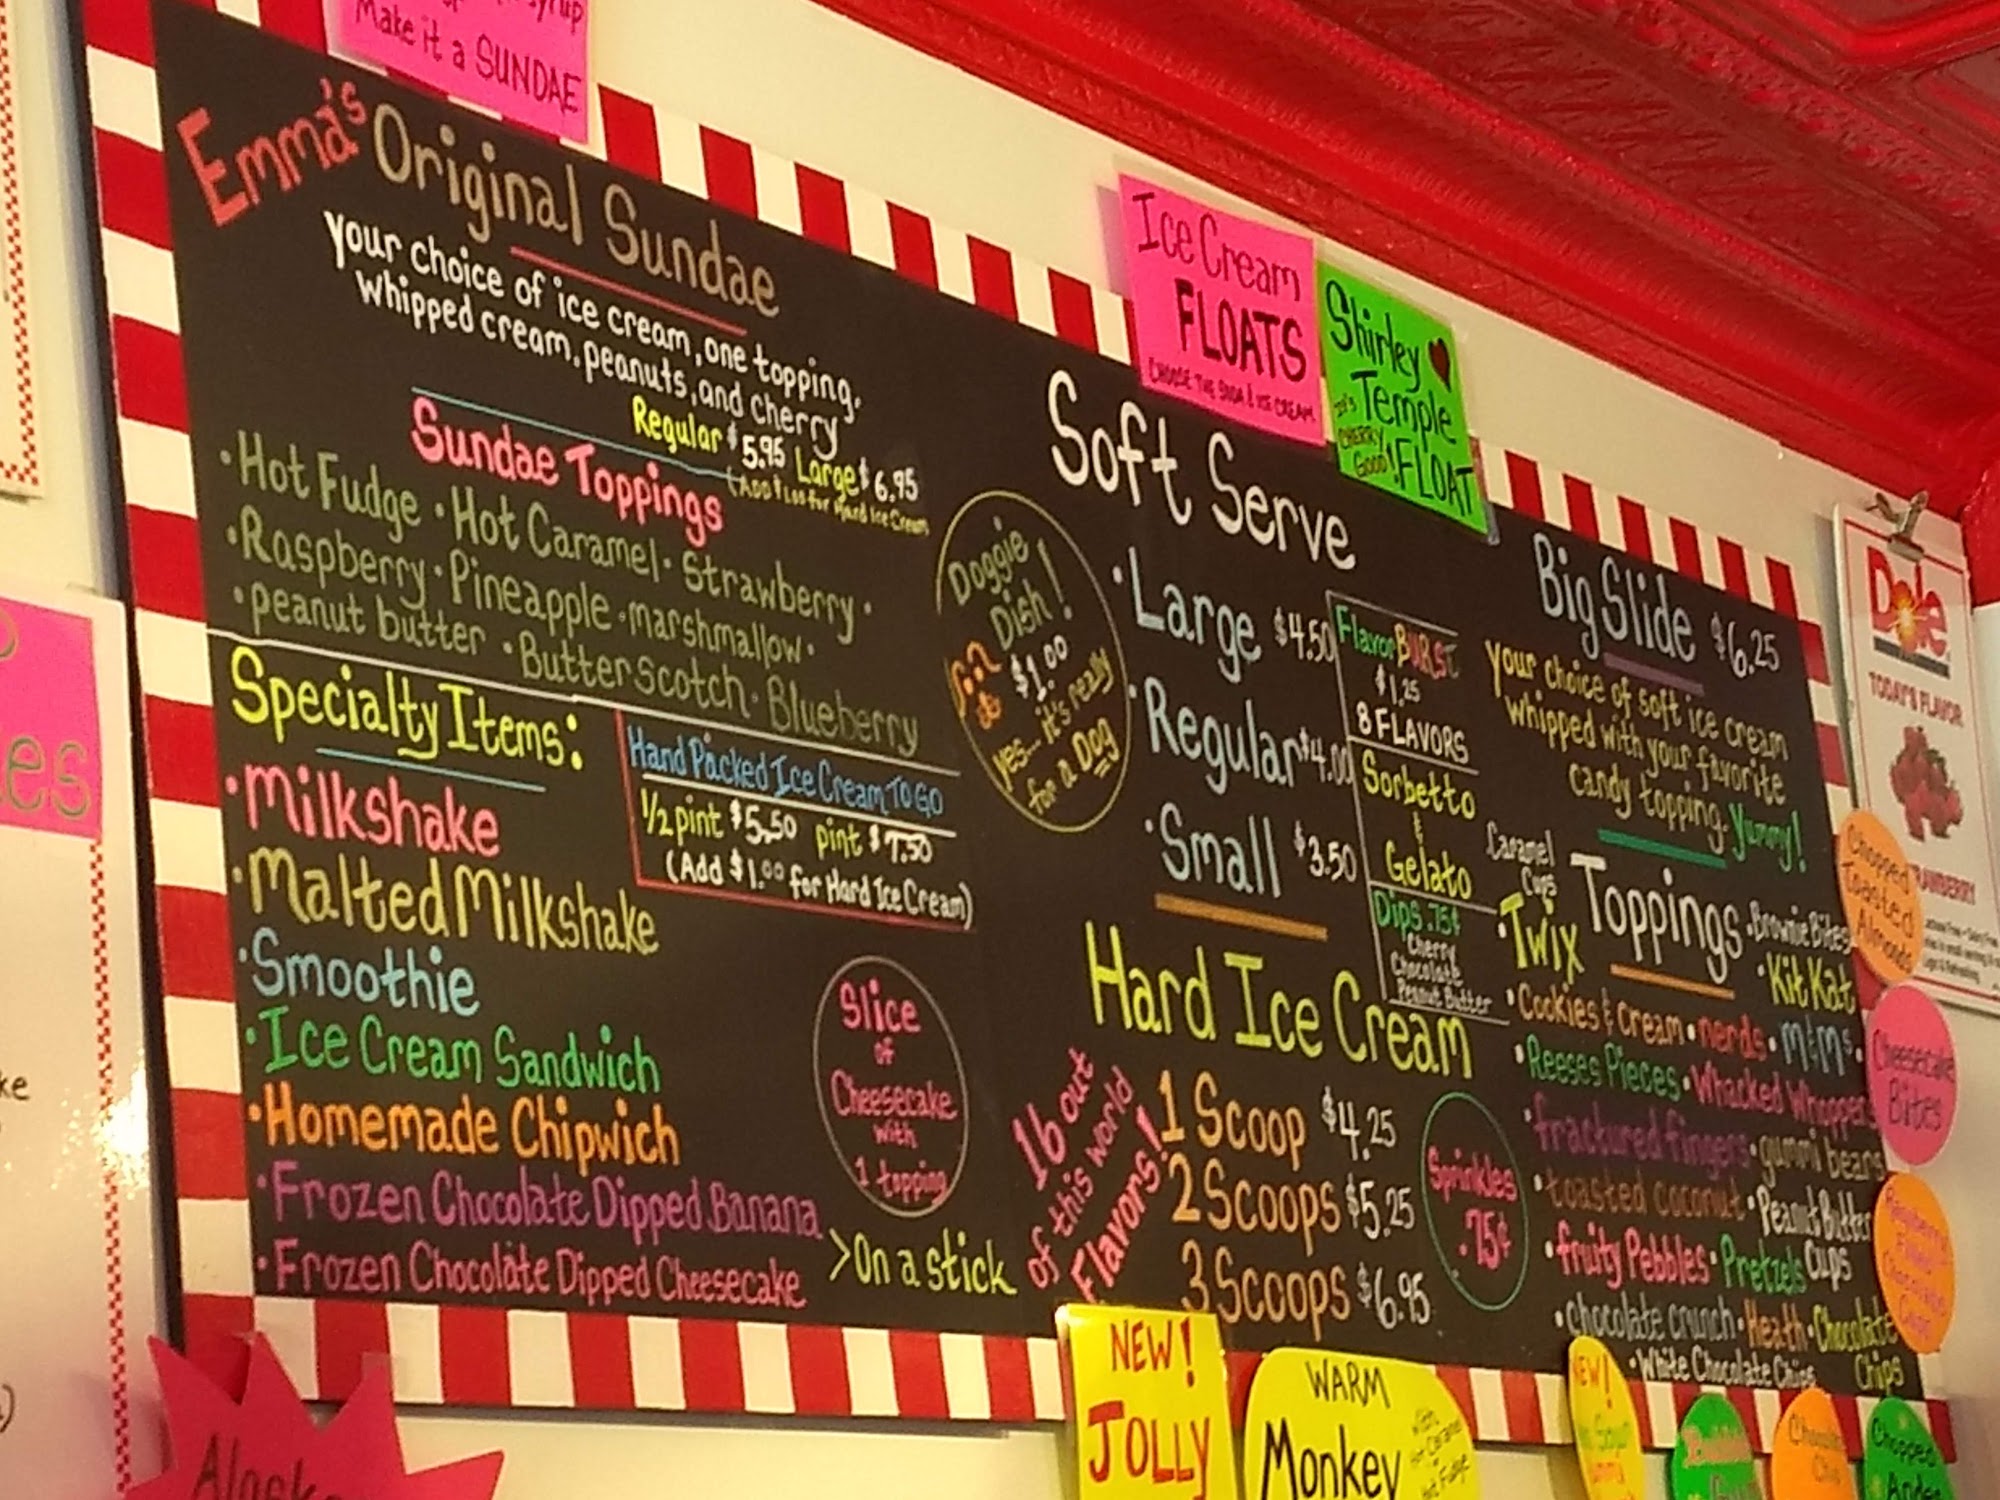 Make it a SUNDAE
Emma's Original Sundae
Your choice of ice cream, one topping,
whipped cream, peanuts, and cherry
Regular $5.95 Large $6.95
(Add $1.00 for Hard Ice Cream
Sundae Toppings
• Hot Fudge • Hot Caramel • Strawberry •
• Raspberry • Pineapple • marshmallow •
• peanut butter • Butterscotch • Blueberry
Specialty Items:
• Milkshake
• Malted Milkshake
• Smoothie
• Ice Cream Sandwich
• Homemade Chipwich
• Frozen Chocolate Dipped Banana
• Frozen Chocolate Dipped Cheesecake
>On a stick
Hand Packed Ice Cream TO GO
1/2 pint $5.50 pint $7.50
(Add $1.00 for Hard Ice Cream)
Slice
of
Cheesecake
with
1 topping
Doggie
Dish!
$1.00
yes... it's really
for a Dog
Ice Cream
FLOATS
CHOOSE THE SODA & ICE CREAM
Shirley
Temple
CHERRY
GOOD!
FLOAT
Soft Serve
• Large $4.50
• Regular $4.00
• Small $3.50
Flavor BURST
$1.25
8 FLAVORS
Sorbetto
&
Gelato
Dips .75¢
Cherry
Chocolate
Peanut Butter
Hard Ice Cream
16 out
of this world
Flavors!
1 Scoop $4.25
2 Scoops $5.25
3 Scoops $6.95
Sprinkles
.75¢
Big Slide $6.25
Your choice of soft ice cream
whipped with your favorite
candy topping. Yummy!
Toppings
Caramel
Cups
• Twix
• Brownie Bites
• Kit Kat
• Cookies & Cream • nerds • M&M's •
• Reeses Pieces • Whacked Whoppers
• fractured fingers • gummi bears
• toasted coconut • Peanut Butter
Cups
• fruity Pebbles • Pretzels
• chocolate crunch • Heath • Chocolate
Chips
• White Chocolate Chips
Dole
TODAY'S FLAVOR
Chopped
Toasted
Almonds
Cheesecake
Bites
NEW!
JOLLY
WARM
Monkey
NEW!
Chopped